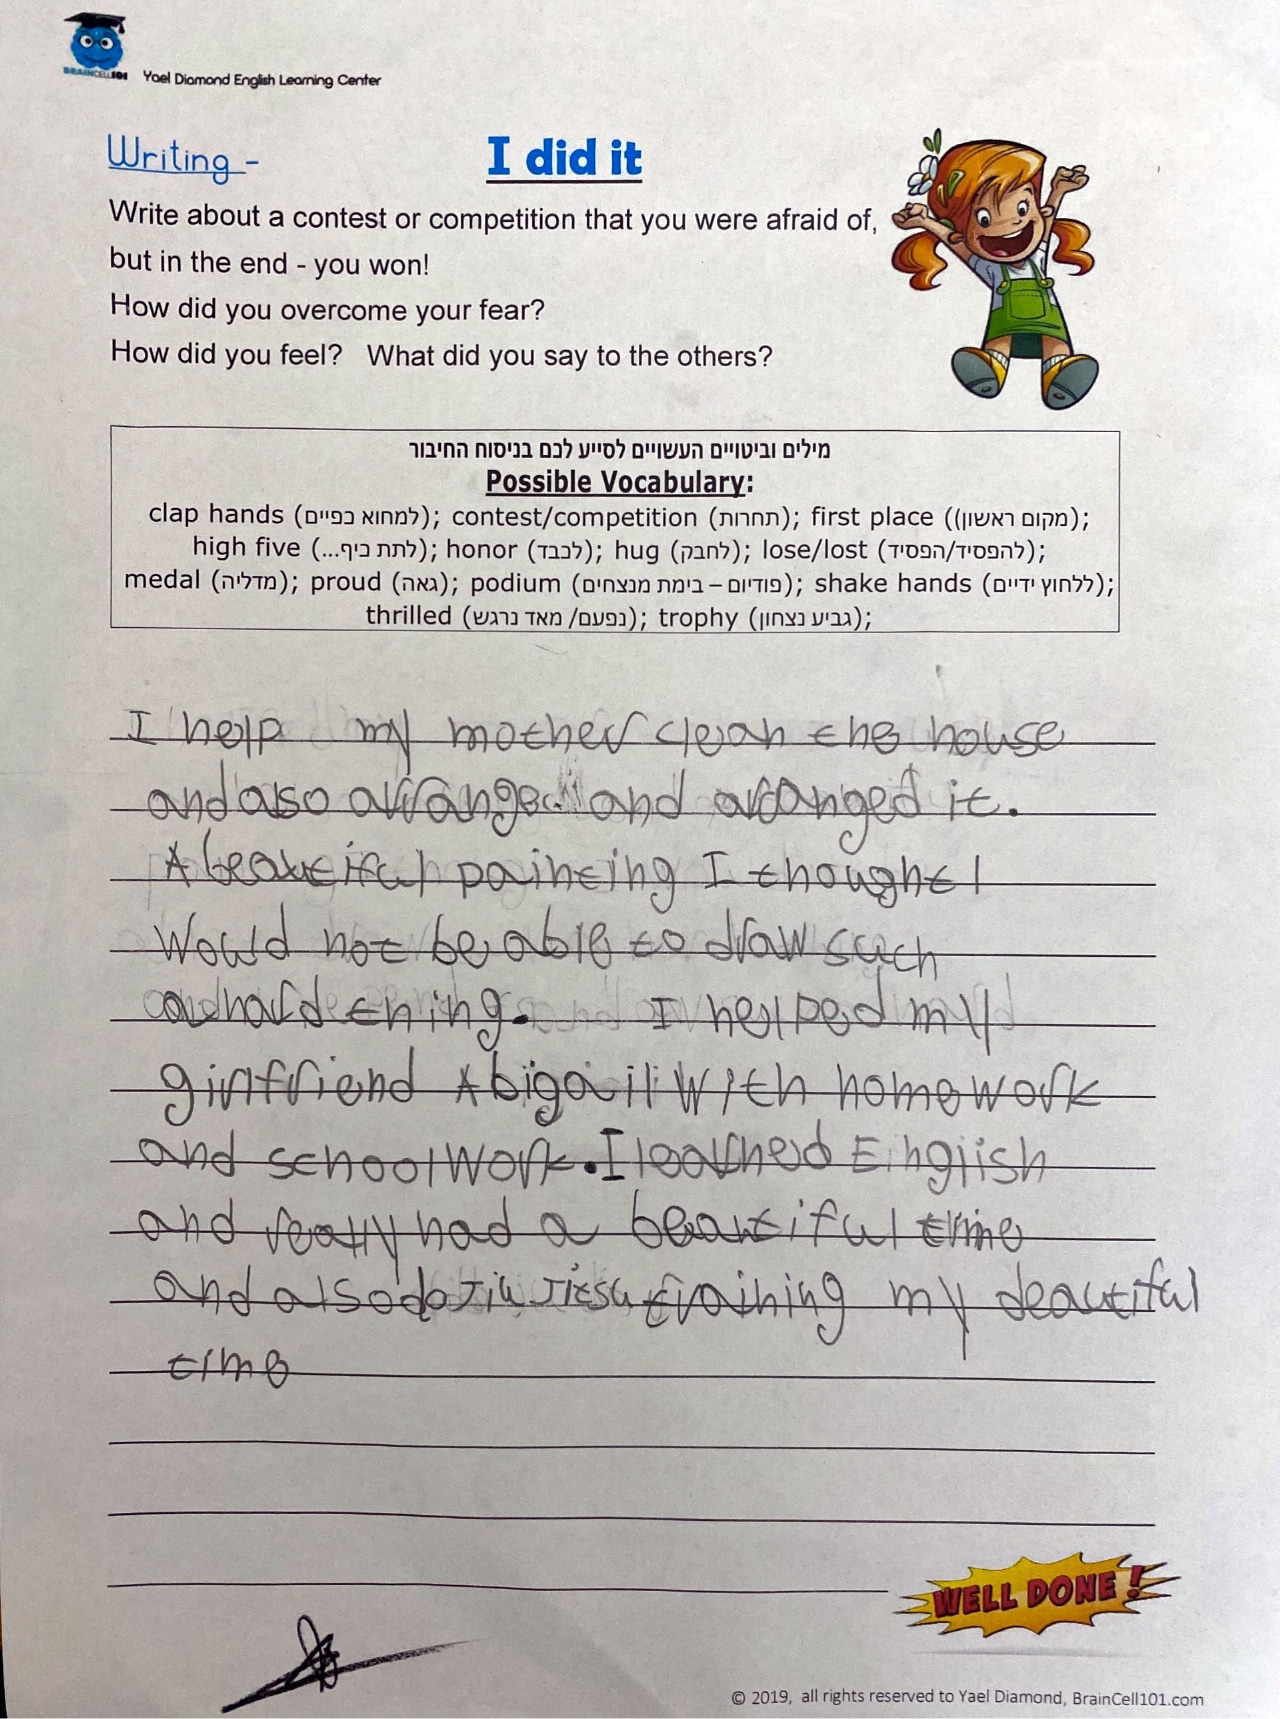 BRAINCELL101 Yael Diamond English Learning Center
Writing -
I did it
Write about a contest or competition that you were afraid of,
but in the end - you won!
How did you overcome your fear?
How did you feel? What did you say to the others?
מילים וביטויים העשויים לסייע לכם בניסוח החיבור
Possible Vocabulary:
clap hands (למחוא כפיים); contest/competition (תחרות); first place ((מקום ראשון);
high five (לתת כיף...); honor (לכבד); hug (לחבק); lose/lost (להפסיד/הפסיד);
medal (מדליה); proud (גאה); podium (פודיום – בימת מנצחים); shake hands (ללחוץ ידיים);
thrilled (נפעם/ מאד נרגש); trophy (גביע נצחון);
I help my mother clean the house
and also arranged and arranged it.
A beautiful painting I thought I
Would not be able to draw such
a hard thing. I helped my
girlfriend Abigail With homework
and schoolwork. I learned English
and really had a beautiful time
and also do training my beautiful
time
WELL DONE!
© 2019, all rights reserved to Yael Diamond, BrainCell101.com